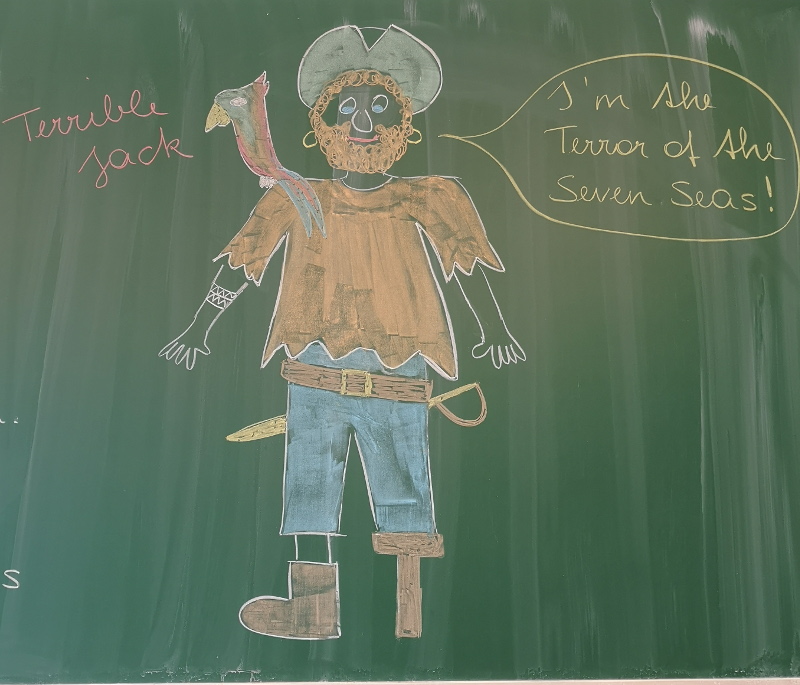 Terrible
Jack
I'm the
Terror of the
Seven Seas!
s